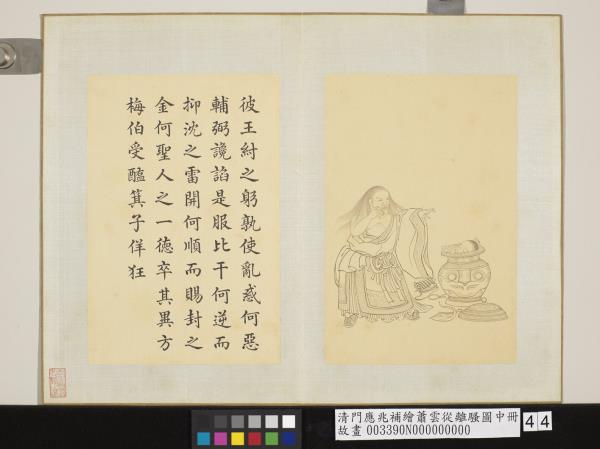 彼王紂之躬孰使亂惑何惡
輔弼讒諂是服比干何逆而
抑沈之雷開何順而賜封之
金何聖人之一德卒其異方
梅伯受醢箕子佯狂
清門應兆補繪蕭雲從離騷圖中冊
故畫 003390N000000000
44